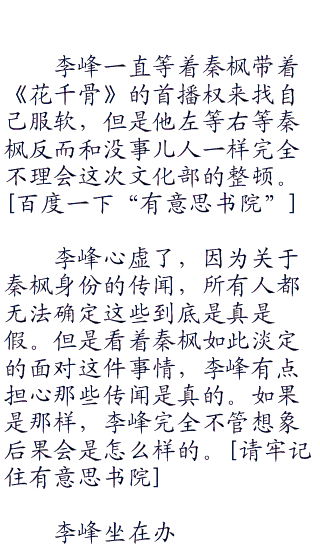 李峰一直等着秦枫带着
《花千骨》的首播权来找自
己服软，但是他左等右等秦
枫反而和没事儿人一样完全
不理会这次文化部的整顿。
[百度一下“有意思书院”]
李峰心虚了，因为关于
秦枫身份的传闻，所有人都
无法确定这些到底是真是
假。但是看着秦枫如此淡定
的面对这件事情，李峰有点
担心那些传闻是真的。如果
是那样，李峰完全不管想象
后果会是怎么样的。[请牢记
住有意思书院]
李峰坐在办